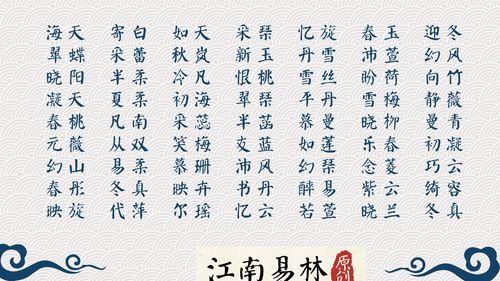 海天 寄白 如天 采琹 忆旋 春玉 迎冬
翠蝶 采蕾 秋岚 新玉 丹雪 沛萱 幻风
晓阳 半柔 冷凡 恨桃 雪丝 盼荷 向竹
凝天 夏柔 初海 翠琹 半丹 雪梅 静薇
春桃 凡南 采蕊 半菡 慕曼 映柳 曼青
元薇 从双 笑梅 支蓝 如莲 乐春 凝冬
幻山 易柔 慕珊 沛风 幻易 念菱 初巧
春彤 冬真 映卉 书丹 醉易 紫云 绮容
映旋 代萍 尔瑶 忆云 若萱 晓兰 冬真
江南易林
原创